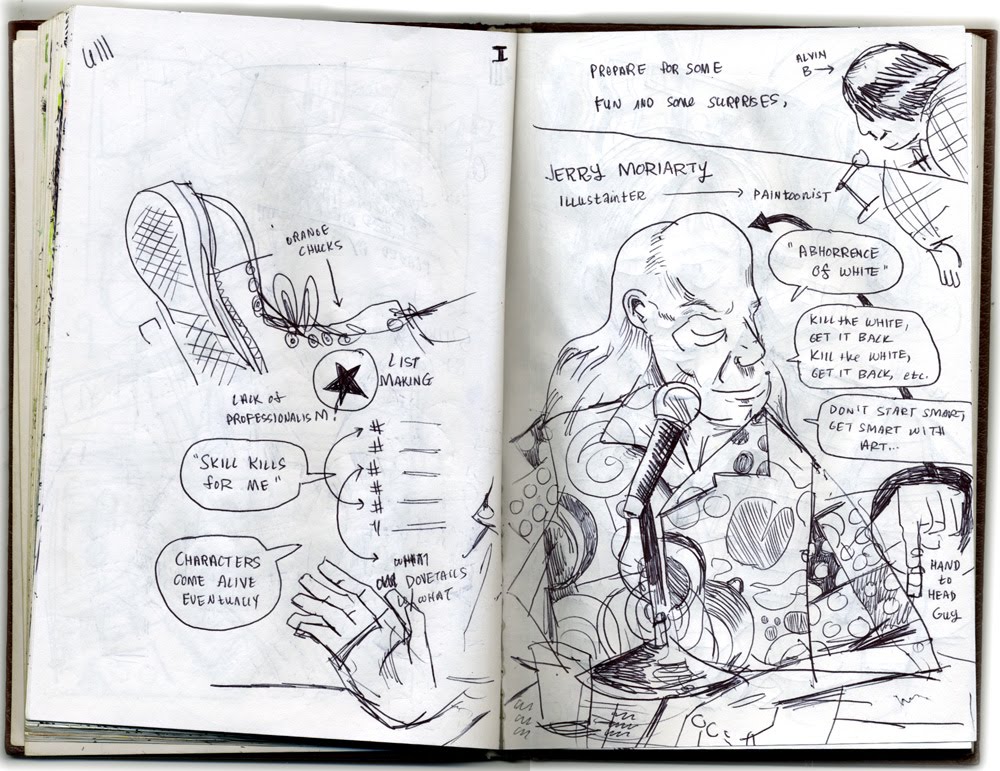 I
ORANGE
CHUCKS
LIST
MAKING
LACK OF
PROFESSIONALISM!
"SKILL KILLS
FOR ME"
#
#
#
#
#
CHARACTERS
COME ALIVE
EVENTUALLY
WHAT
DOVETAILS
W/ WHAT
PREPARE FOR SOME
FUN AND SOME SURPRISES,
ALVIN
B →
JERRY MORIARTY
ILLUSTAINTER → PAINTOONIST
"ABHORRENCE
OF WHITE"
KILL THE WHITE,
GET IT BACK
KILL THE WHITE,
GET IT BACK, ETC.
DON'T START SMART,
GET SMART WITH
ART...
HAND
TO
HEAD
GUY